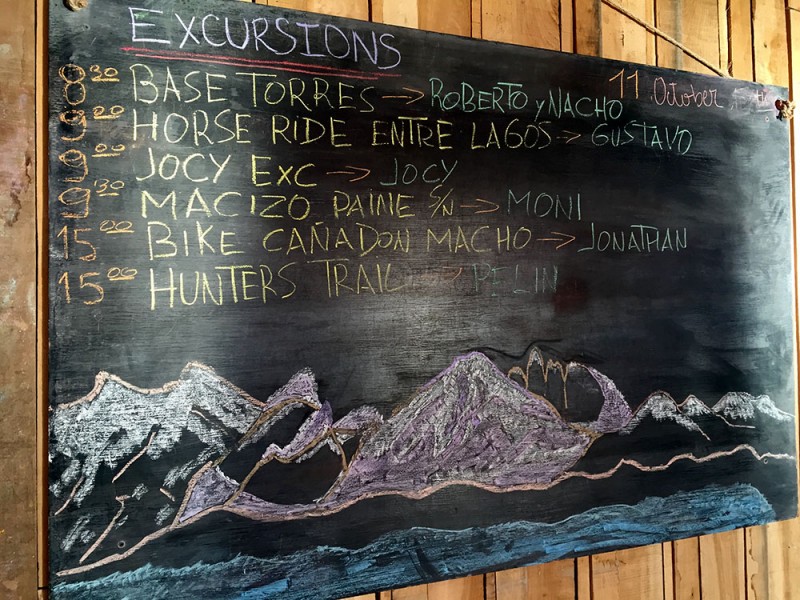 EXCURSIONS
11 October
8:30 BASE TORRES → ROBERTO y NACHO
9:00 HORSE RIDE ENTRE LAGOS → GUSTAVO
9:00 JOCY EXC → JOCY
9:30 MACIZO PAINE S/N → MONI
15:00 BIKE CAÑADON MACHO → JONATHAN
15:00 HUNTERS TRAIL → PELIN